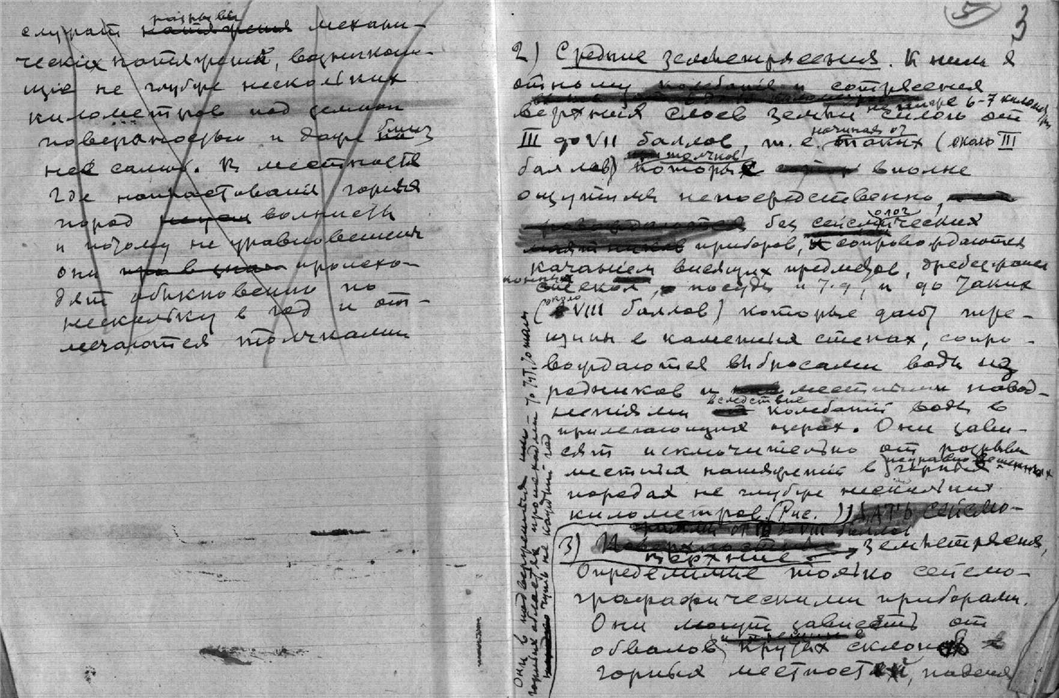 служат разрывы механи-
ческих напряжений, возникаю-
щие не глубже нескольких
километров под земной
поверхностью и даже близ
нее самой. В местностях
где напластования горных
пород волнисты
и потому не уравновешены
они происхо-
дят обыкновенно по
нескольку в год и от-
мечаются толчками
3
2) Средние землетрясения. К ним я
отношу сотрясения
верхних слоев земли не шире 6-7 километр
силою от
III до VII баллов, т.е. начиная от таких (около III
баллов) которые вполне
ощутимы непосредственно,
без сейсмологических
приборов, сопровождаются
качаньем висящих предметов, дребезжаньем
стекол, посуды и т.д., и до таких
(около VIII баллов) которые дают тре-
щины в каменных стенах, сопро-
вождаются выбросами воды из
родников и местными навод-
нениями вследствие колебаний воды в
прилегающих озерах. Они зави-
сят исключительно от разрыва
местных напряжений в неуравновешенных горных
породах не глубже нескольких
километров. (Рис. ) ДАТЬ СЕЙСМО-
Они в подвергнутых им
горных областях происходят
чуть не каждый год
3) землетрясения,
Определимые только сейсмо-
графическими приборами.
Они могут зависеть от
обвалов крутых склонов в
горных местностей, падения